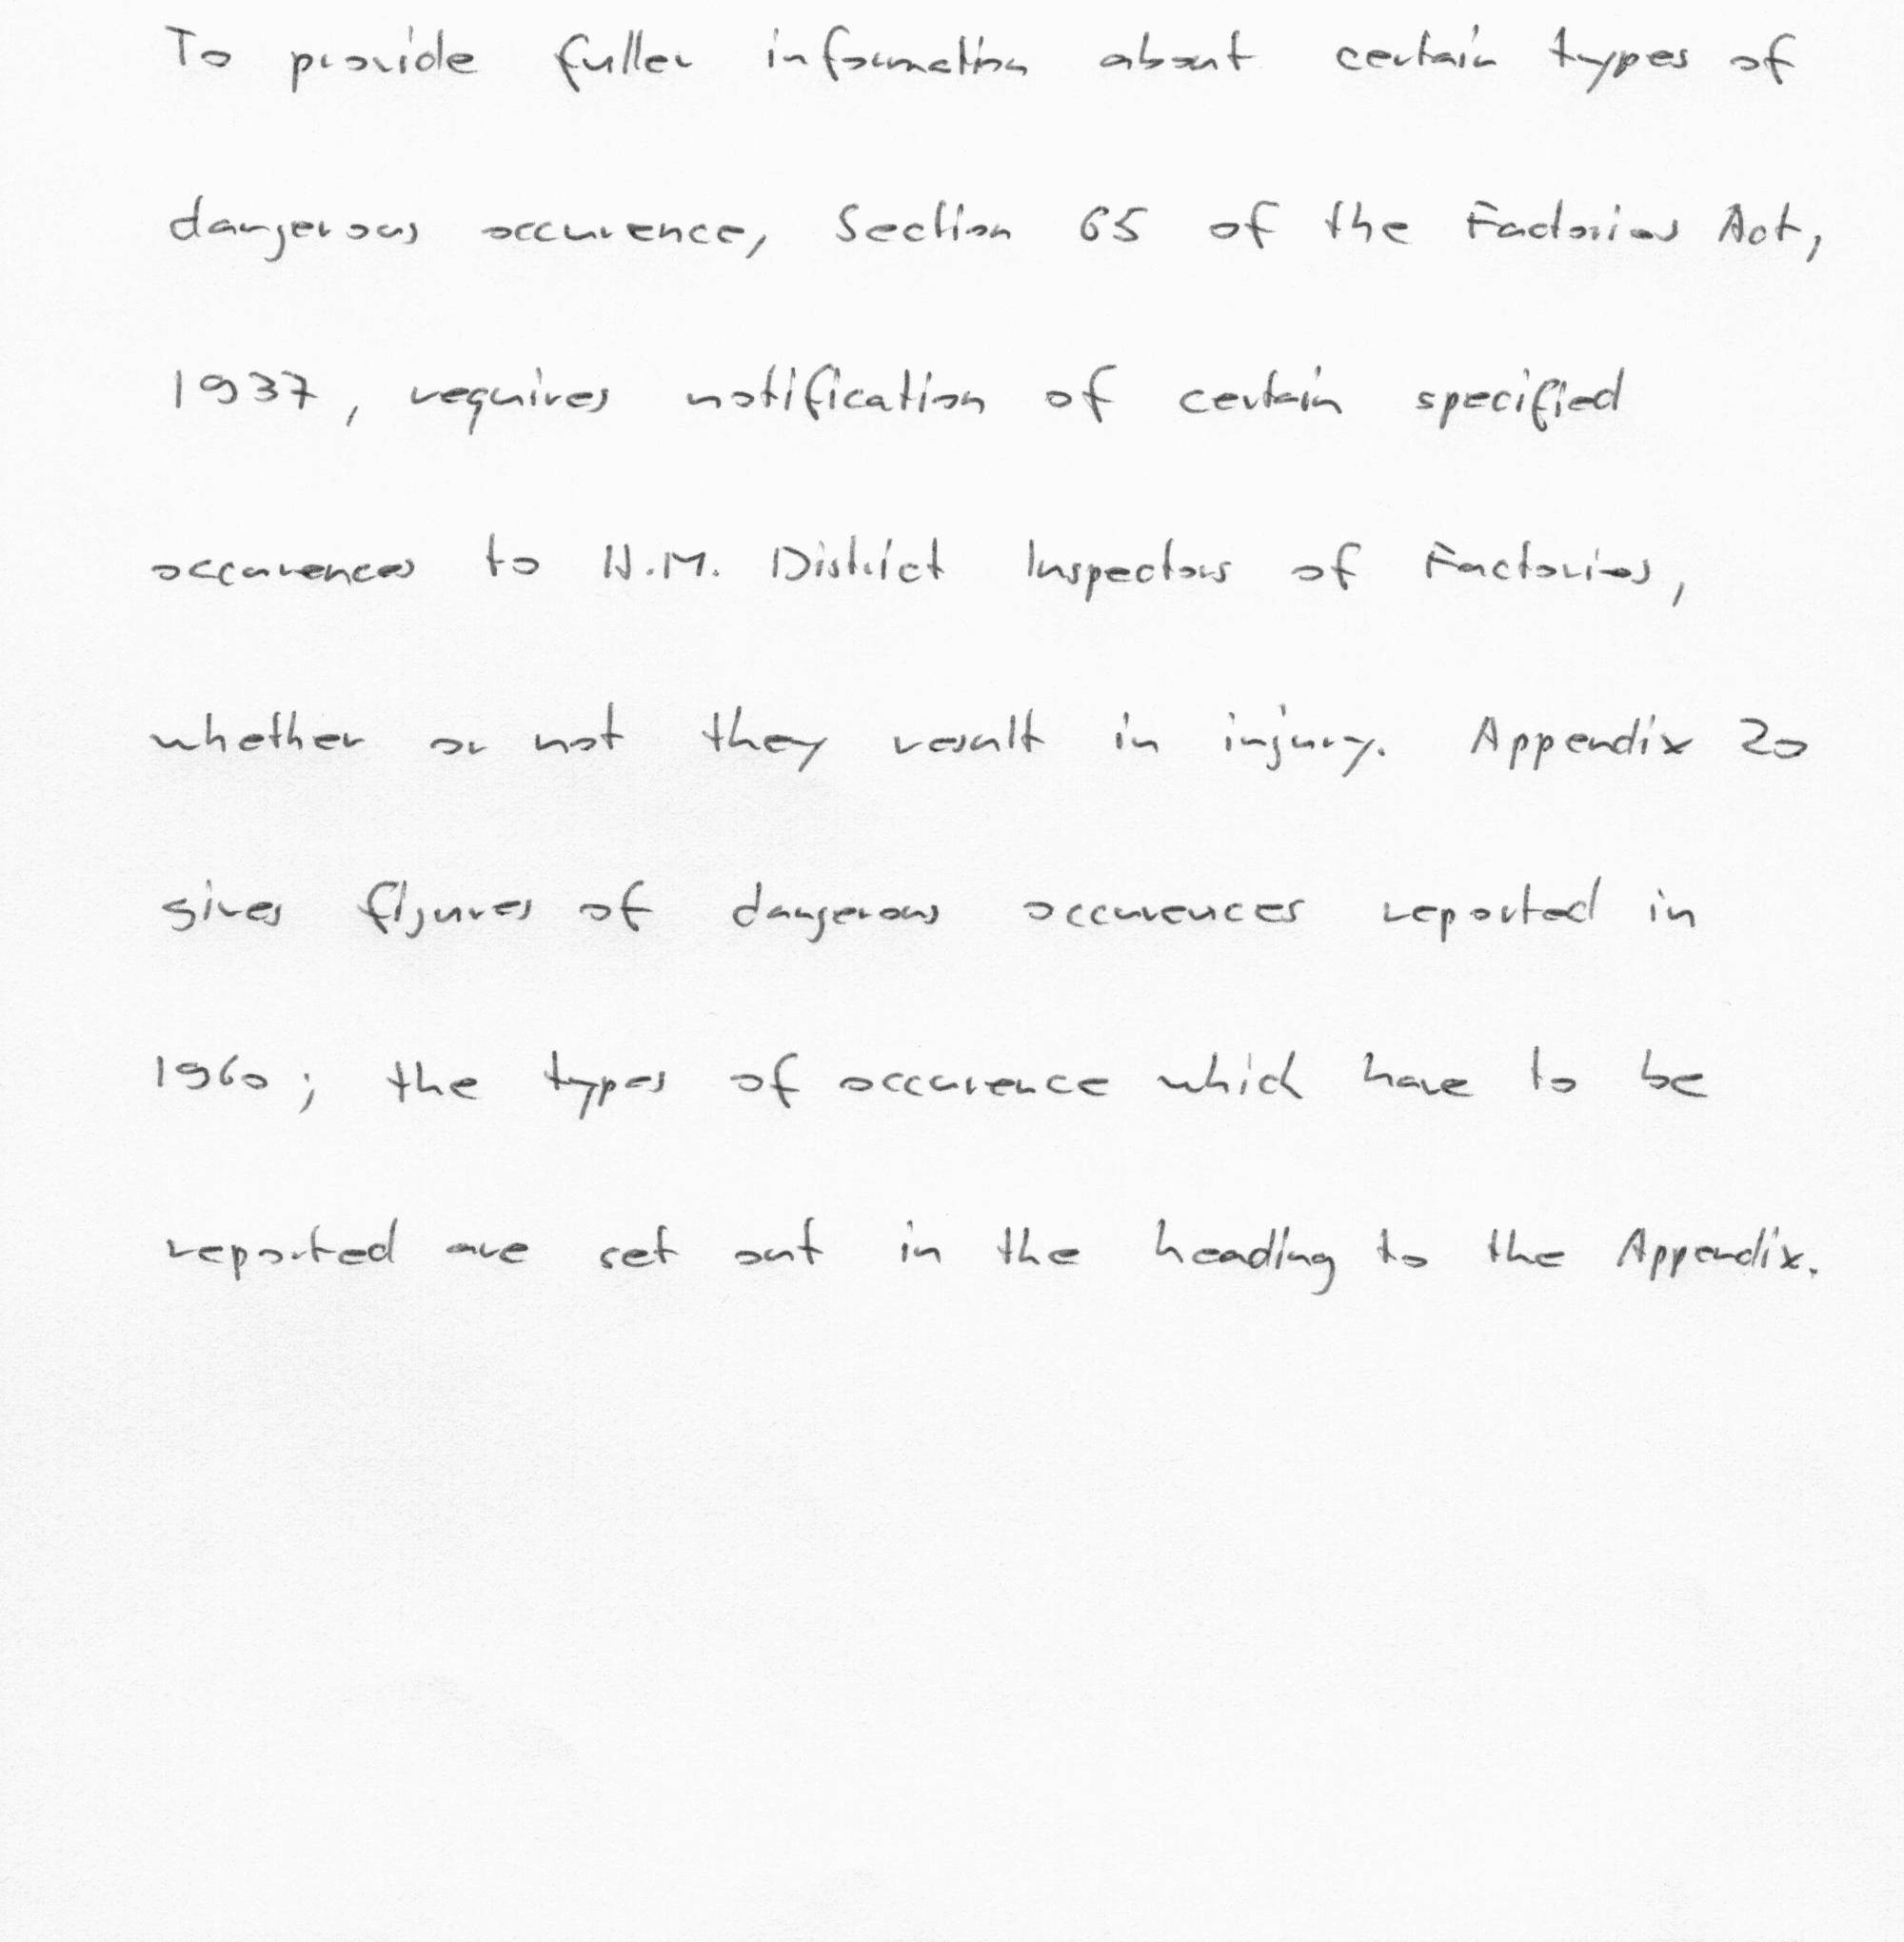 To provide fuller information about certain types of
dangerous occurence, Section 65 of the Factories Act,
1937, requires notification of certain specified
occurences to H.M. District Inspectors of Factories,
whether or not they result in injury. Appendix 20
gives figures of dangerous occurences reported in
1960; the types of occurence which have to be
reported are set out in the heading to the Appendix.